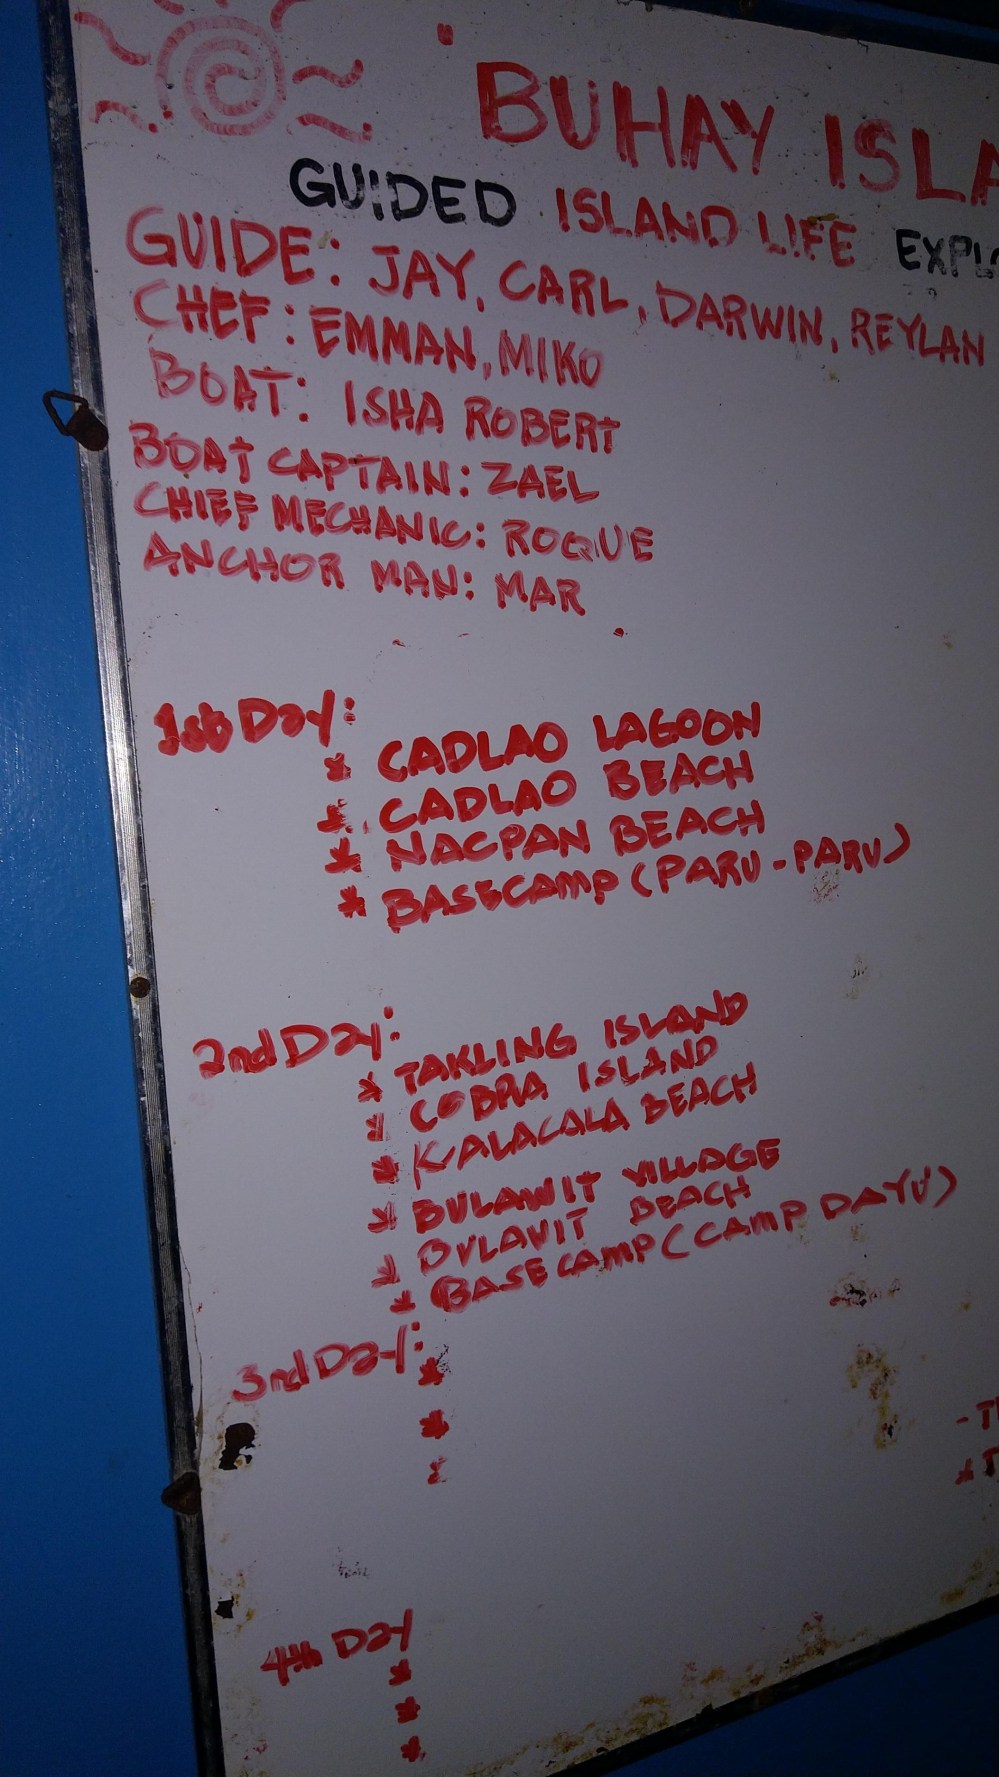 BUHAY ISLA
GUIDED ISLAND LIFE EXPL
GUIDE: JAY, CARL, DARWIN, REYLAN
CHEF: EMMAN, MIKO
BOAT: ISHA ROBERT
BOAT CAPTAIN: ZAEL
CHIEF MECHANIC: ROQUE
ANCHOR MAN: MAR
1st Day:
* CADLAO LAGOON
* CADLAO BEACH
* NACPAN BEACH
* BASECAMP (PARU-PARU)
2nd Day:
* TAKLING ISLAND
* COBRA ISLAND
* KALACALA BEACH
* BULAWIT VILLAGE
* BULAUIT BEACH
* BASECAMP (CAMP DAYU)
3rd Day:
*
*
*
4th Day
*
*
*